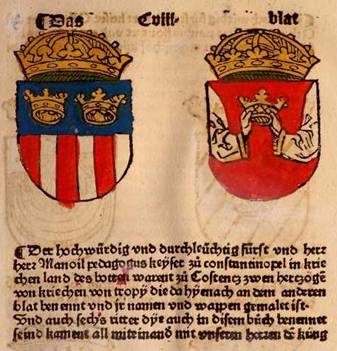 ¶ Das Cviii· blat
¶ Der hochwürdig vnd durchleüchtig fürst vnd herr
herr Manoil pedagogus keyser zů constantinopel in krie
chen land des botten warent zů Costentz zwen hertzogē
von kriechen von tropy die da hyenach an dem anderen
blat benennt vnd jr namen vnd wappen gemalet ist·
Vnd auch sechs ritter dye auch in disem bůch benennet
seind kament all miteinand mit vnseren herren dē küng